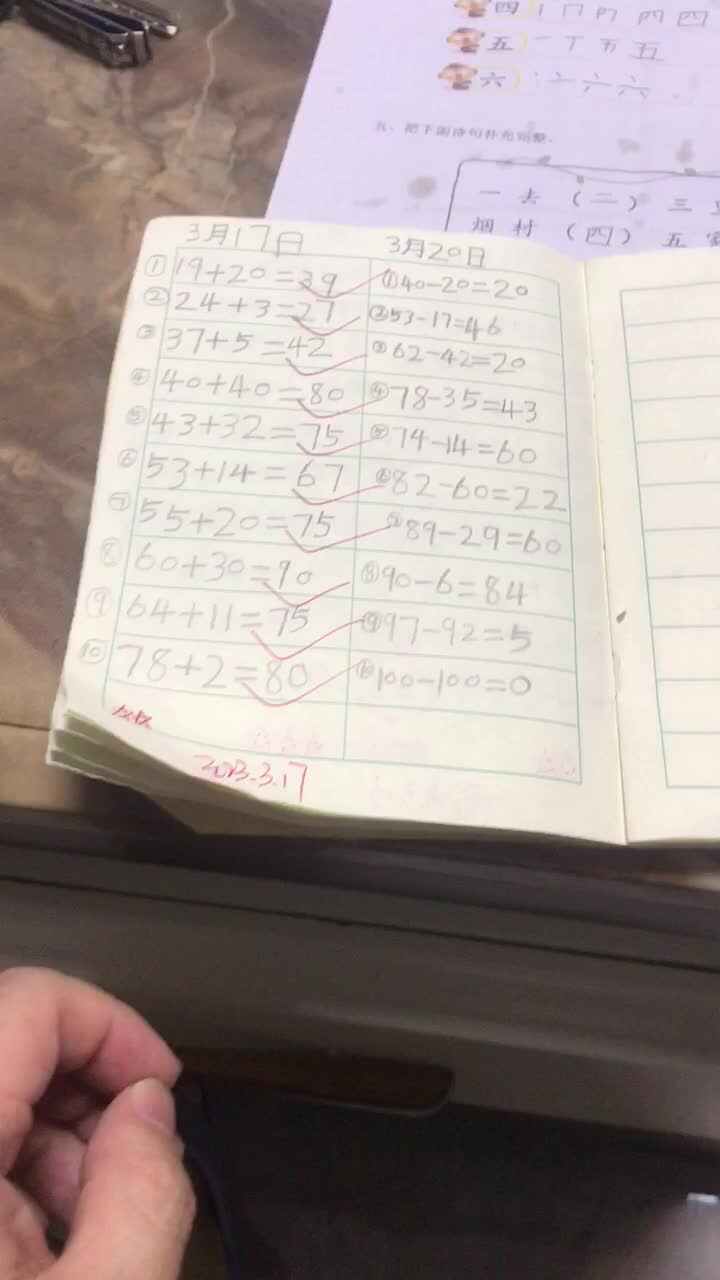 四
五 一 丁 五 五
六 丶 亠 六 六
五、把下面诗句补充完整。
一 去 (二) 三
烟 村 (四) 五
3月17日
①19+20=39
②24+3=27
③37+5=42
④40+40=80
⑤43+32=75
⑥53+14=67
⑦55+20=75
⑧60+30=90
⑨64+11=75
⑩78+2=80
2023.3.17
3月20日
①40-20=20
②53-17=46
③62-42=20
④78-35=43
⑤74-14=60
⑥82-60=22
⑦89-29=60
⑧90-6=84
⑨97-92=5
⑩100-100=0